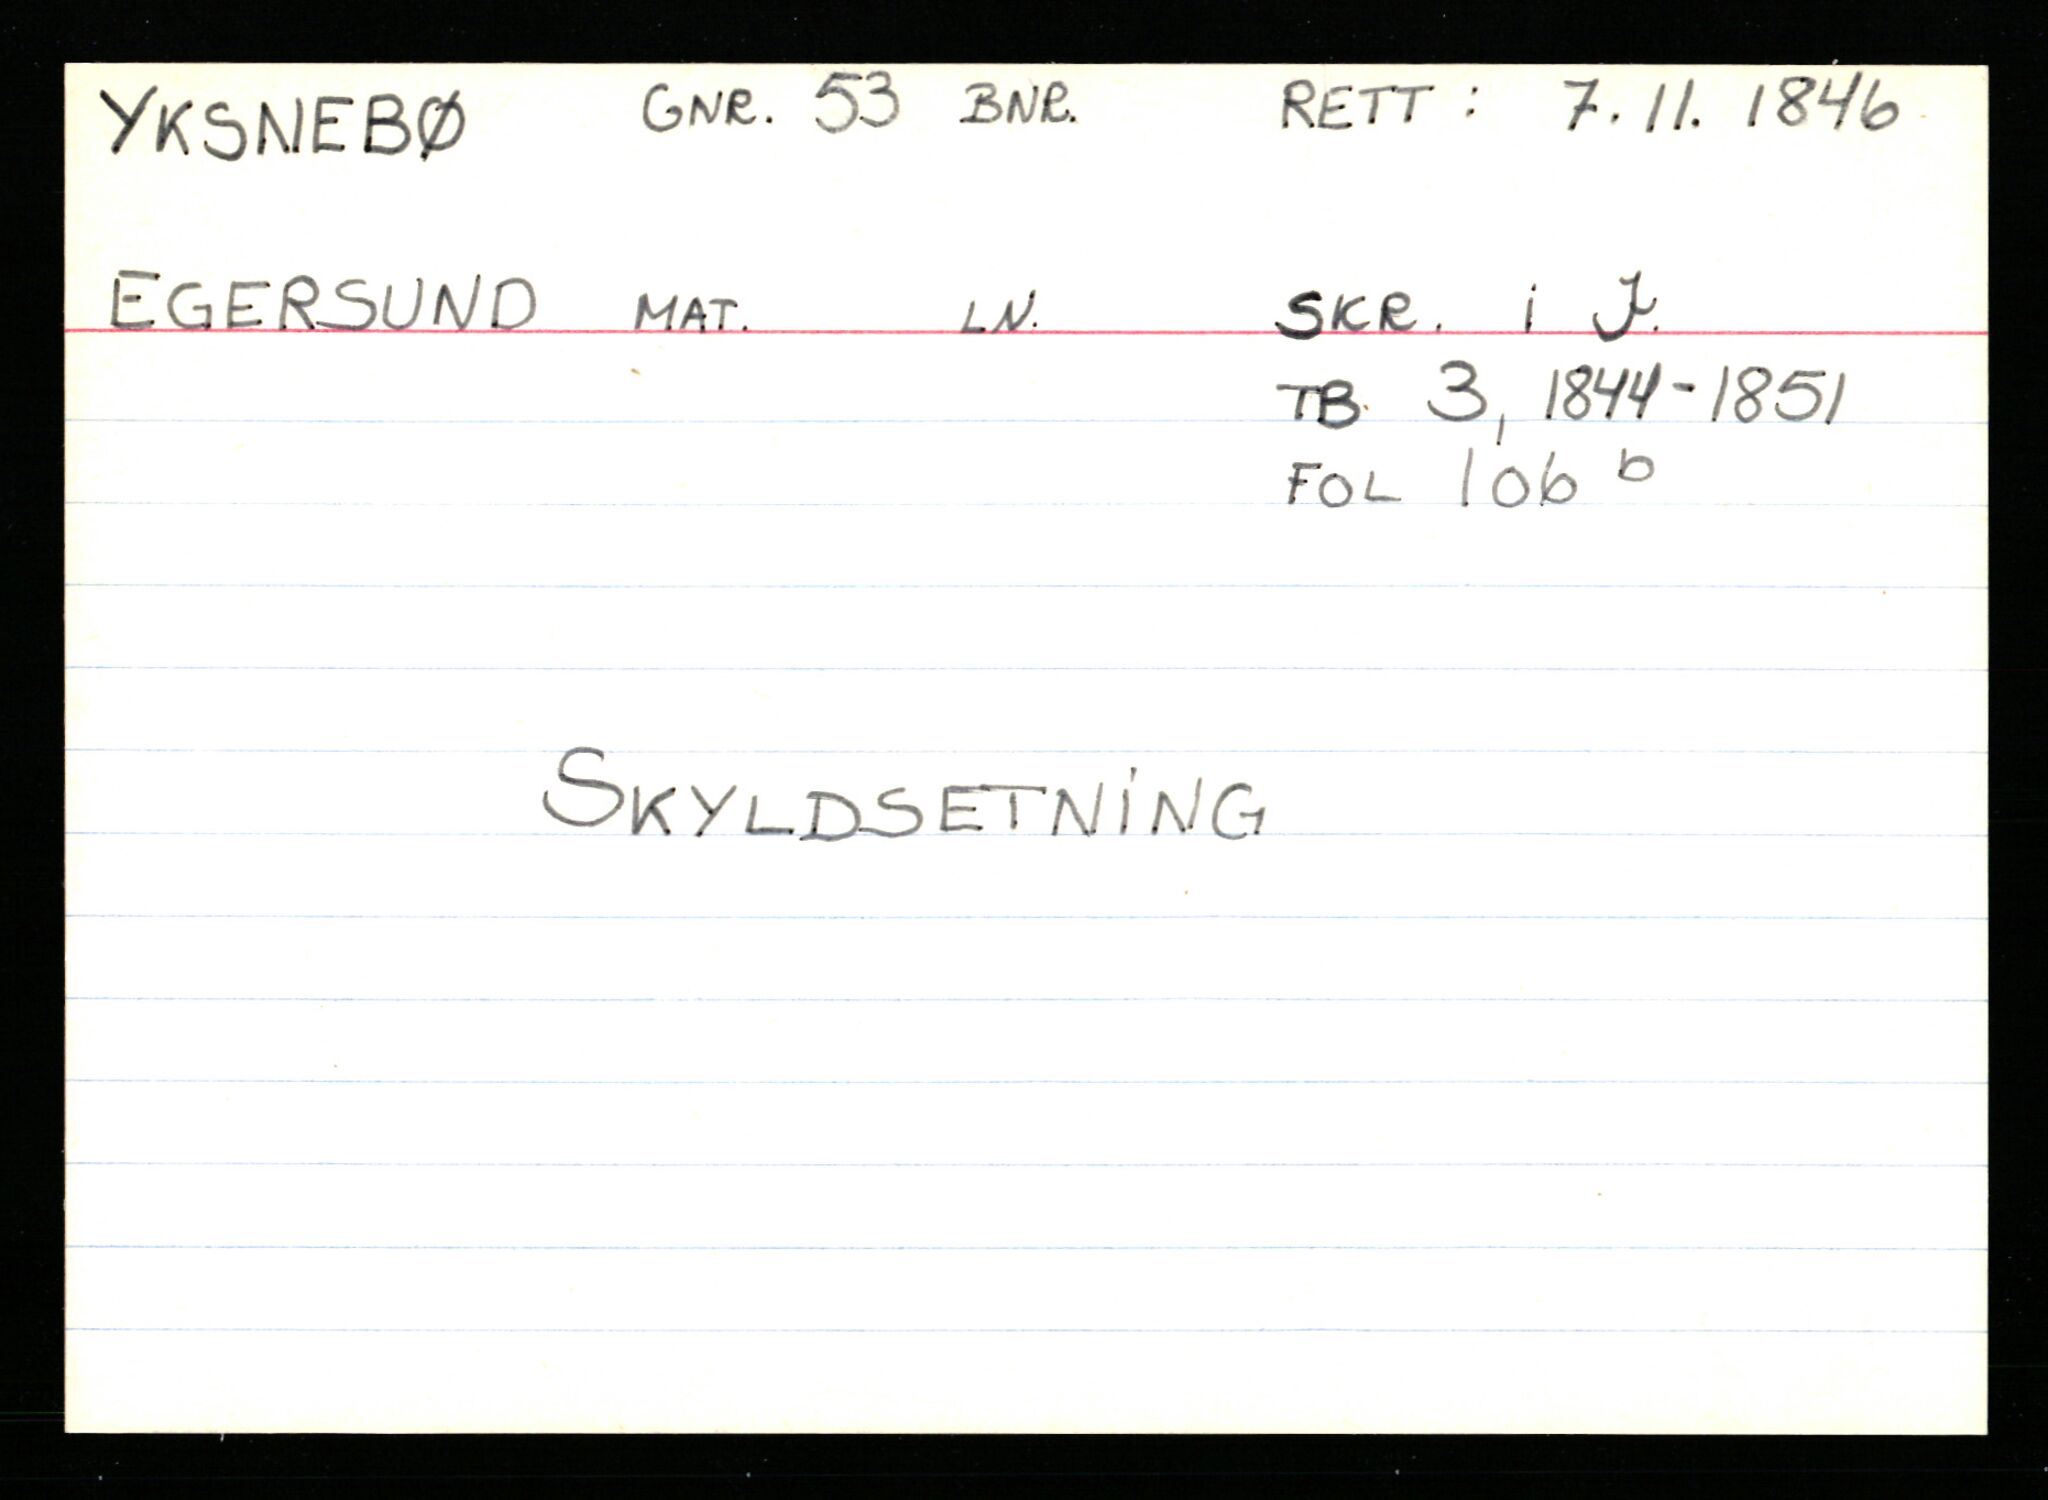 YKSNEBØ GNR. 53 BNR. RETT: 7.11.1846
EGERSUND MAT. LN. SKR. i J.
TB. 3, 1844-1851
FOL 106 b
SKYLDSETNING